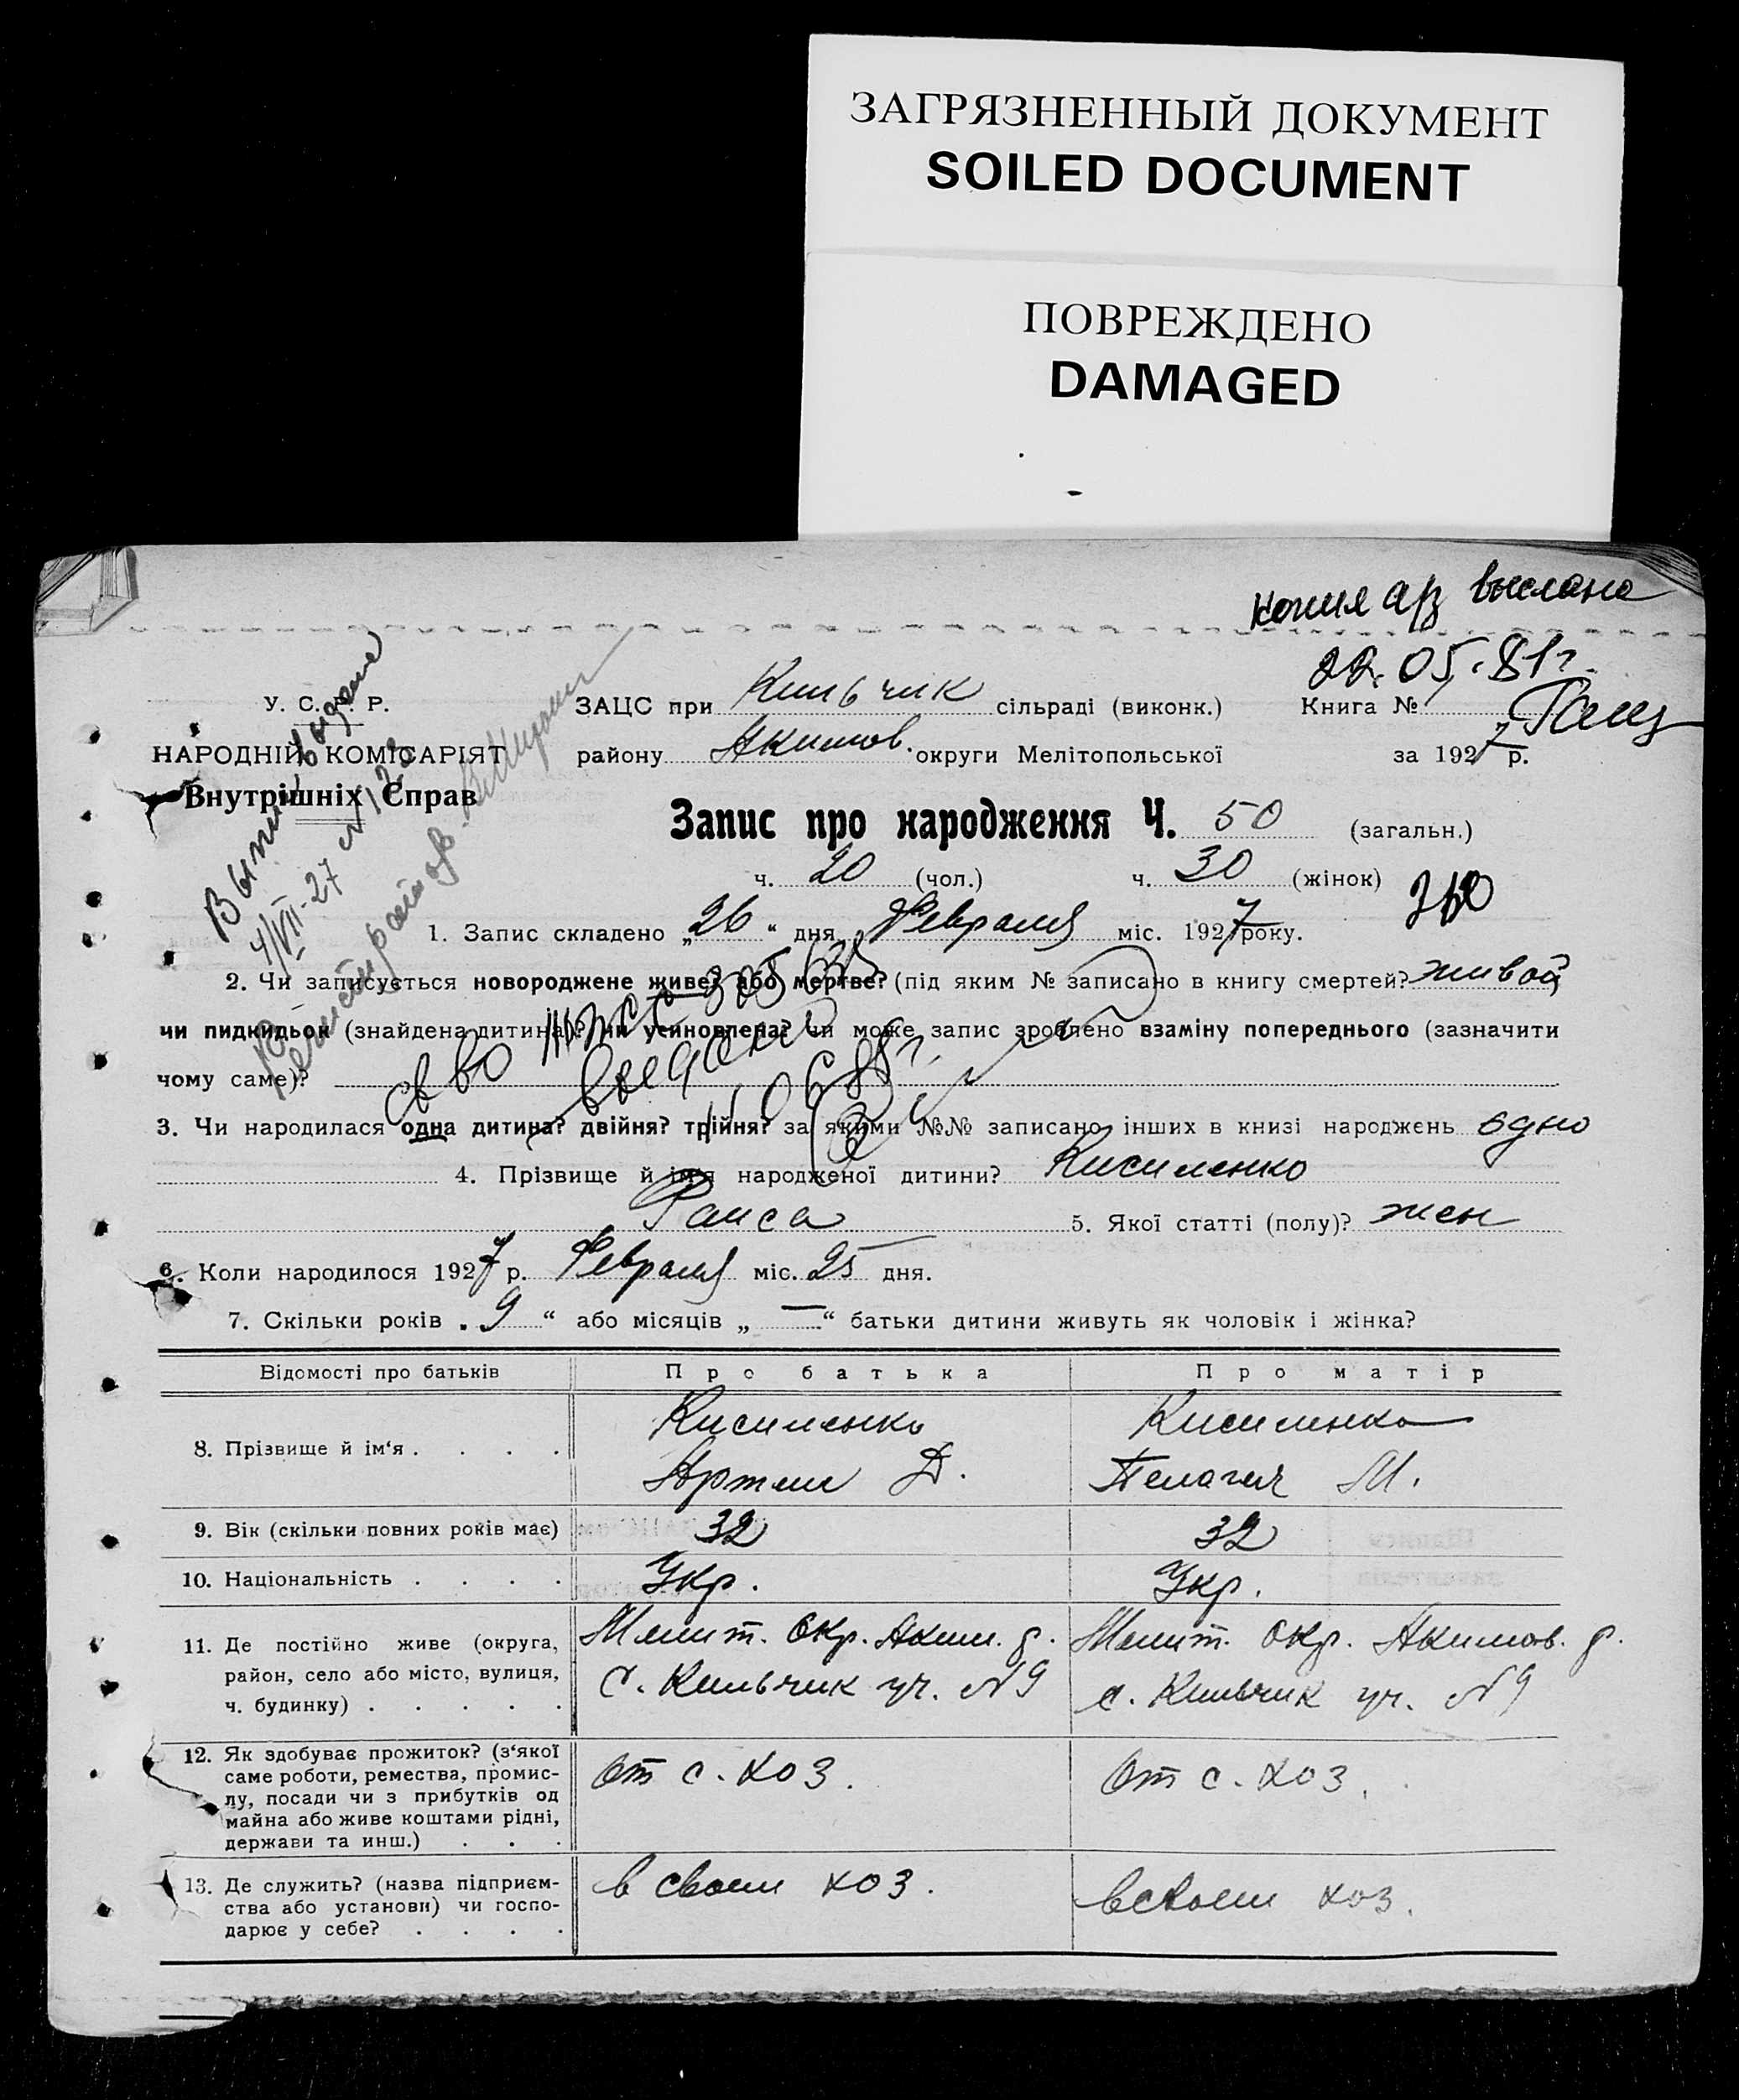 ЗАГРЯЗНЕННЫЙ ДОКУМЕНТ
SOILED DOCUMENT
ПОВРЕЖДЕНО
DAMAGED
копия а/з выслана
22.05.81г.
У. С. Р. Р.
НАРОДНІЙ КОМІСАРІЯТ
Внутрішніх Справ
Выпись выдана
4/VII-27
ЗАЦС при Кильчик сільраді (виконк.)
Книга №
району Акимов. округи Мелітопольської
за 1927 р.
Запис про народження Ч. 50 (загальн.)
ч. 20 (чол.) ч. 30 (жінок)
1. Запис складено „26“ дня Февраля міс. 1927 року.
2. Чи записується новороджене живе? або мертве? (під яким № записано в книгу смертей? живой
чи пидкидьок (знайдена дитина)? чи усиновлена? чи може запис зроблено взаміну попереднього (зазначити
чому саме)?
св во
выдано
3. Чи народилася одна дитина? двійня? трійня? за якими №№ записано інших в книзі народжень одно
4. Прізвище й ім'я народженої дитини? Кисиленко
Раиса 5. Якої статті (полу)? жен
6. Коли народилося 1927 р. Февраля міс. 25 дня.
7. Скільки років „9“ або місяців „—“ батьки дитини живуть як чоловік і жінка?
Відомості про батьків Про батька Про матір
8. Прізвище й ім'я . . . . Кисиленко Артем Д. Кисиленко Пелагея М.
9. Вік (скільки повних років має) 32 32
10. Національність . . . . Укр. Укр.
11. Де постійно живе (округа, Мелит. Окр. Аким. р. Мелит. Окр. Акимов. р.
район, село або місто, вулиця, с. Кильчик уч. №9 с. Кильчик уч. №9
ч. будинку) . . . . .
12. Як здобуває прожиток? (з'якої
саме роботи, ремества, промис- От с. хоз. От с. хоз.
лу, посади чи з прибутків од
майна або живе коштами рідні,
держави та инш.) . . .
13. Де служить? (назва підприєм- в своем хоз. в своем хоз.
ства або установи) чи госпо-
дарює у себе? . . . .